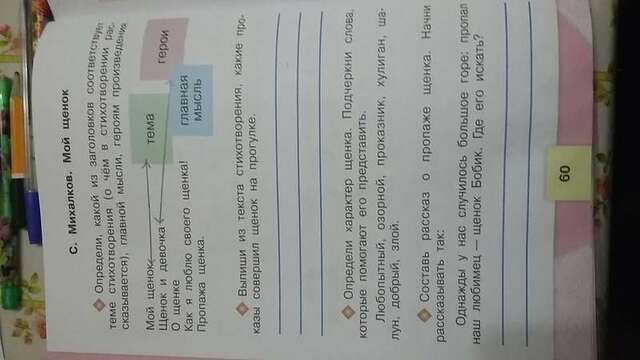 С. Михалков. Мой щенок
Определи, какой из заголовков соответствует
теме стихотворения (о чём в стихотворении рас-
сказывается), главной мысли, героям произведения
Мой щенок
Щенок и девочка
О щенке
Как я люблю своего щенка!
Пропажа щенка.
тема
герои
главная
мысль
Выпиши из текста стихотворения, какие про-
казы совершил щенок на прогулке.
Определи характер щенка. Подчеркни слова,
которые помогают его представить.
Любопытный, озорной, проказник, хулиган, ша-
лун, добрый, злой.
Составь рассказ о пропаже щенка. Начни
рассказывать так:
Однажды у нас случилось большое горе: пропал
наш любимец — щенок Бобик. Где его искать?
60